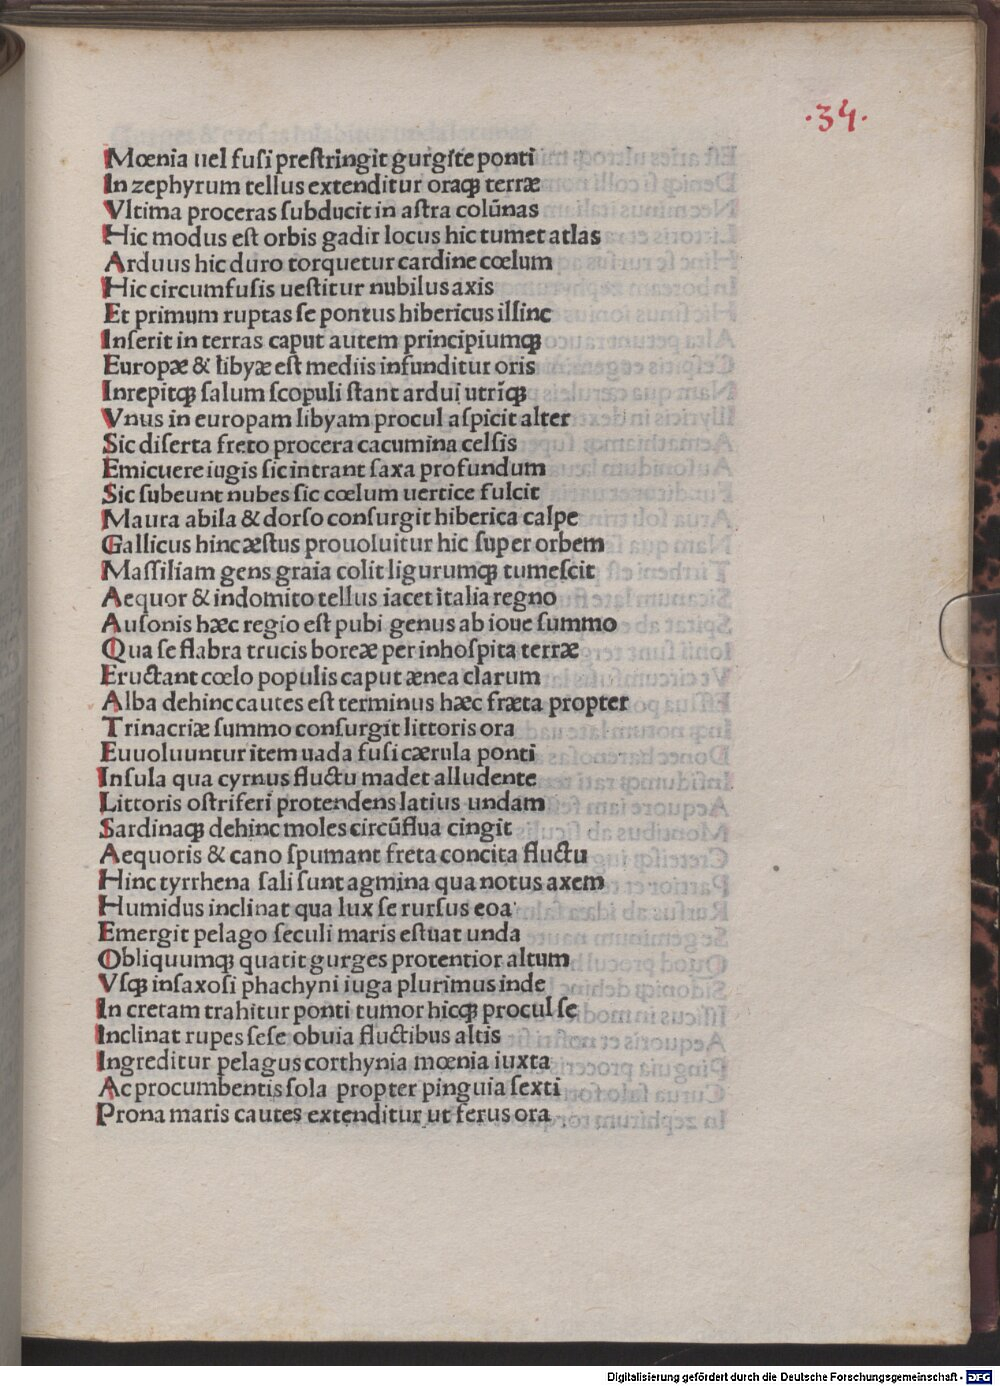 .34.
Mœnia uel fusi prestringit gurgite ponti
In zephyrum tellus extenditur oraqꝫ terræ
Vltima proceras subducit in astra colūnas
Hic modus est orbis gadir locus hic tumet atlas
Arduus hic duro torquetur cardine cœlum
Hic circumfusis uestitur nubilus axis
Et primum ruptas se pontus hibericus illinc
Inserit in terras caput autem principiumqꝫ
Europæ & libyæ est mediis infunditur oris
Inrepitqꝫ salum scopuli stant ardui utrīqꝫ
Vnus in europam libyam procul aspicit alter
Sic diserta freto procera cacumina celsis
Emicuere iugis sic intrant saxa profundum
Sic subeunt nubes sic cœlum uertice fulcit
Maura abila & dorso consurgit hiberica calpe
Gallicus hinc æstus prouoluitur hic super orbem
Massiliam gens graia colit ligurumqꝫ tumescit
Aequor & indomito tellus iacet italia regno
Ausonis hæc regio est pubi genus ab ioue summo
Qua se flabra trucis boreæ per inhospita terræ
Eructant cœlo populis caput ænea clarum
Alba dehinc cautes est terminus hæc fræta propter
Trinacriæ summo consurgit littoris ora
Euuoluuntur item uada fusi cærula ponti
Insula qua cyrnus fluctu madet alludente
Littoris ostriferi protendens latius undam
Sardinaqꝫ dehinc moles circūflua cingit
Aequoris & cano spumant freta concita fluctu
Hinc tyrrhena sali sunt agmina qua notus axem
Humidus inclinat qua lux se rursus eoa
Emergit pelago seculi maris estuat unda
Obliquumqꝫ quatit gurges protentior altum
Vsqꝫ insaxosi phachyni iuga plurimus inde
In cretam trahitur ponti tumor hicqꝫ procul se
Inclinat rupes sese obuia fluctibus altis
Ingreditur pelagus corthynia mœnia iuxta
Ac procumbentis sola propter pinguia sexti
Prona maris cautes extenditur ut ferus ora
Digitalisierung gefördert durch die Deutsche Forschungsgemeinschaft - DFG